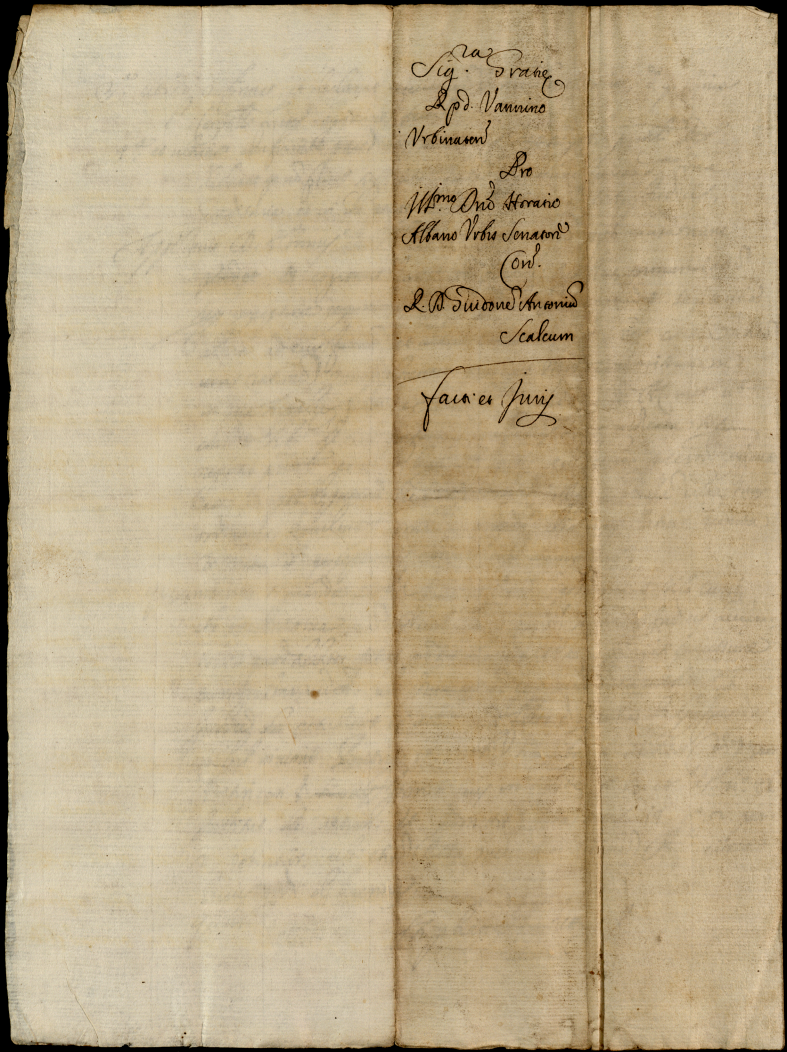 Sig.ra Gratie
R.p.d. Vannino
Urbinaten
Pro
Ill.mo Dno Horatio
Albano Urbis Senatore
Con.
R. D. Guidone Antoniu
Scalcum
facti et Juris